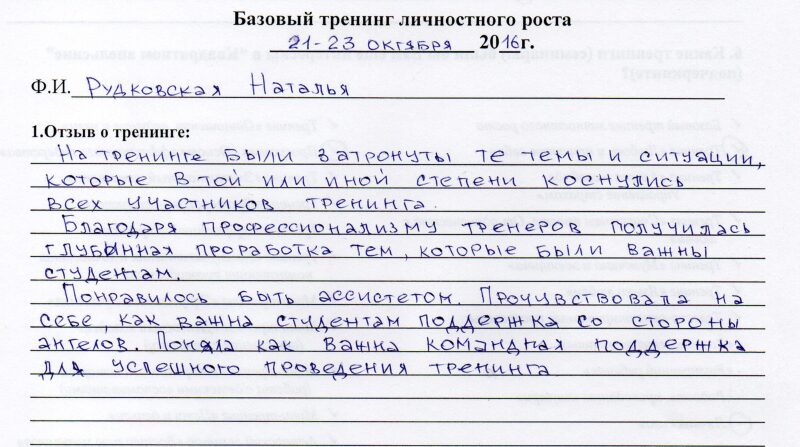 Базовый тренинг личностного роста
21-23 октября 2016г.
Ф.И. Рудковская Наталья
1.Отзыв о тренинге:
На тренинге были затронуты те темы и ситуации,
которые в той или иной степени коснулись
всех участников тренинга.
Благодаря профессионализму тренеров получилась
глубинная проработка тем, которые были важны
студентам.
Понравилось быть ассистетом. Прочувствовала на
себе, как важна студентам поддержка со стороны
ангелов. Поняла как важна командная поддержка
для успешного проведения тренинга.